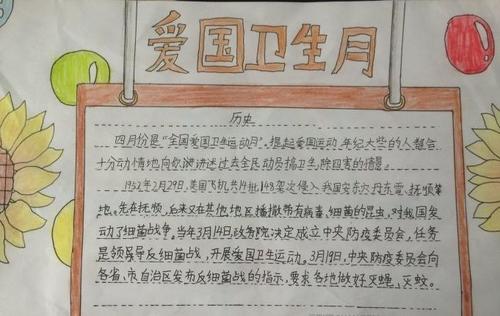 爱国卫生月
历史
四月份是“全国爱国卫生运动月”。提起爱国运动,年纪大些的人都会
十分动情地向你讲述过去全民动员搞卫生、除四害的情景。
1952年2月29日,美国飞机共14批148架次侵入我国安东、丹东、抚顺等
地,先在抚顺,后来又在其他地区播撒带有病毒、细菌的昆虫,对我国发
动了细菌战争。当年3月14日政务院决定成立中央防疫委员会,任务
是领导反细菌战,开展爱国卫生运动。3月19日,中央防疫委员会向
各省、市、自治区发布反细菌战的指示,要求各地做好灭蝇、灭蚊。